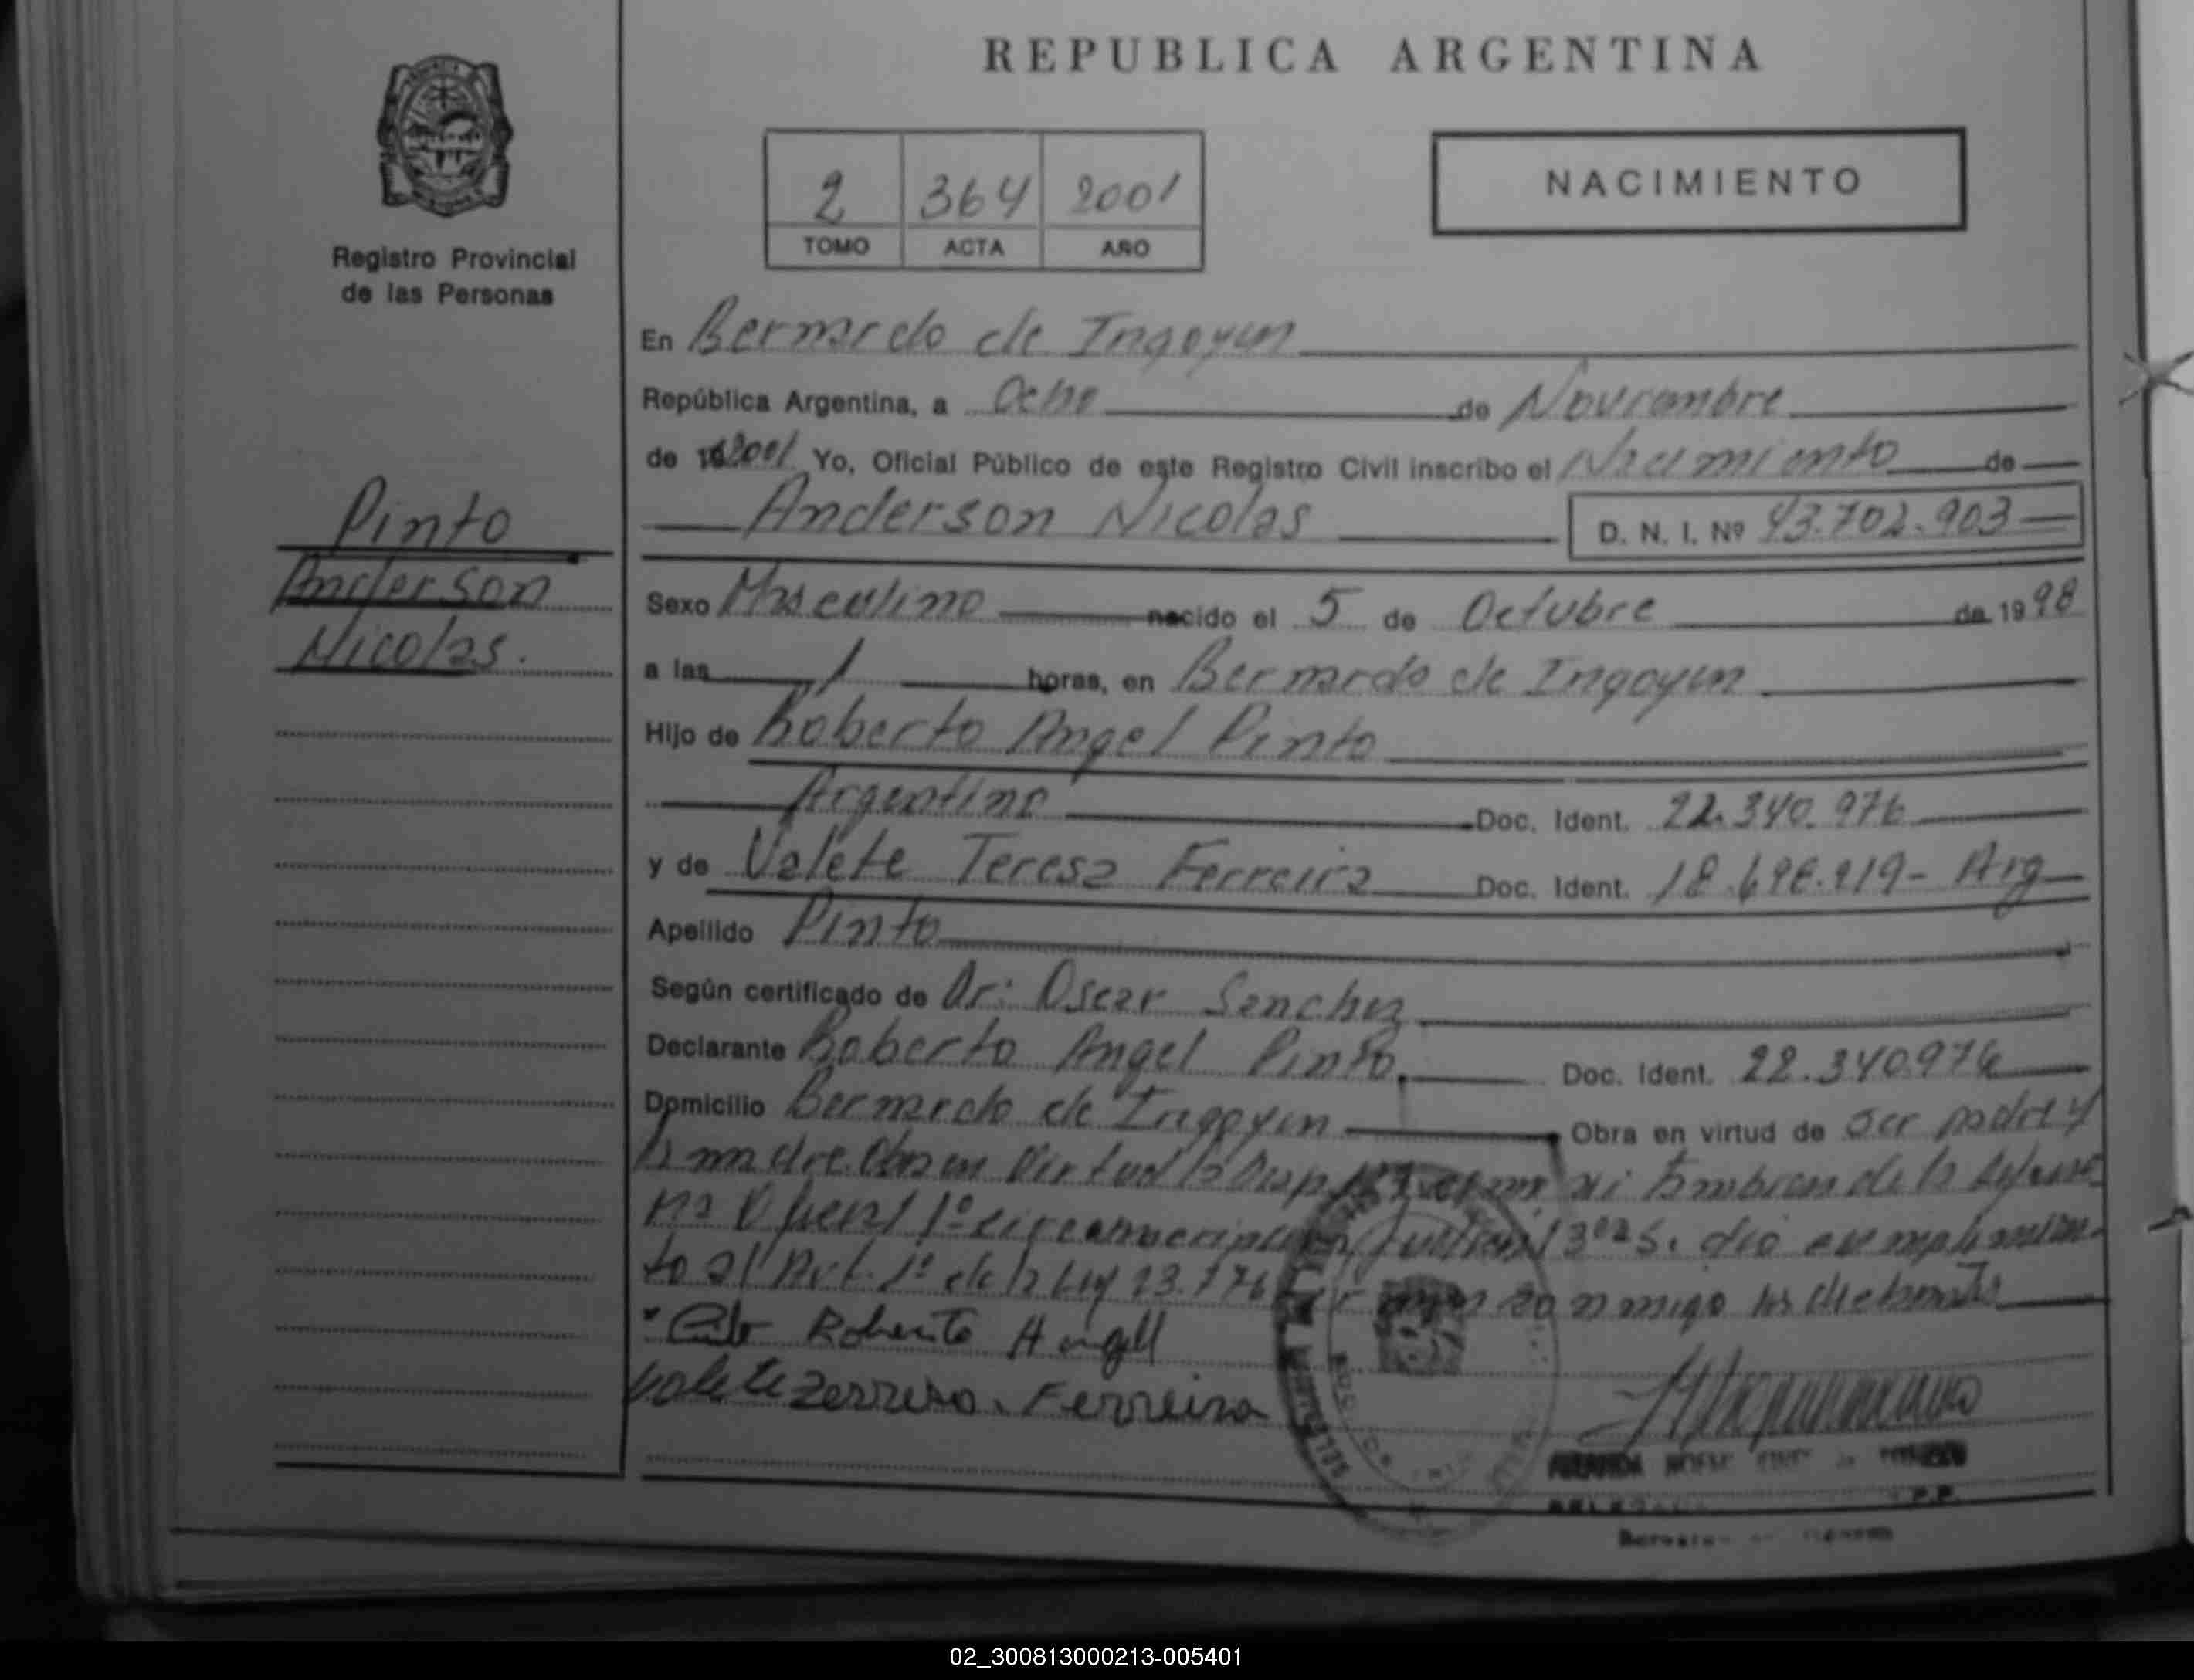 REPUBLICA ARGENTINA
Registro Provincial
de las Personas
2 364 2001
TOMO ACTA AÑO
NACIMIENTO
Pinto
Anderson
Nicolas.
En Bernardo de Irigoyen
República Argentina, a Ocho de Noviembre
de 2001 Yo, Oficial Público de este Registro Civil inscribo el Nacimiento de
Anderson Nicolas D. N. I. Nº 43.702.903
Sexo Masculino nacido el 5 de Octubre de 1998
a las 1 horas, en Bernardo de Irigoyen
Hijo de Roberto Angel Pinto
Argentino Doc. Ident. 22.340.976
y de Valete Teresa Ferreira Doc. Ident. Arg
Apellido Pinto
Según certificado de Dr: Oscar Sanchez
Declarante Roberto Angel Pinto. Doc. Ident. 22.340.976
Domicilio Bernardo de Irigoyen Obra en virtud de ser padre y
la madre en Virtud la
1º
to al Art. 1º de la Ley conmigo los
Roberto Angel
Valete Ferreira
02_300813000213-005401